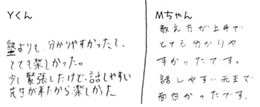 Yくん
塾よりも、分かりやすかったし、
とても楽しかった。
少し緊張したけど、話しやすい
先生が来たから楽しかった
Mちゃん
教え方が上手で
とても分かりや
すかったです。
話しやすい先生で
面白かったです。